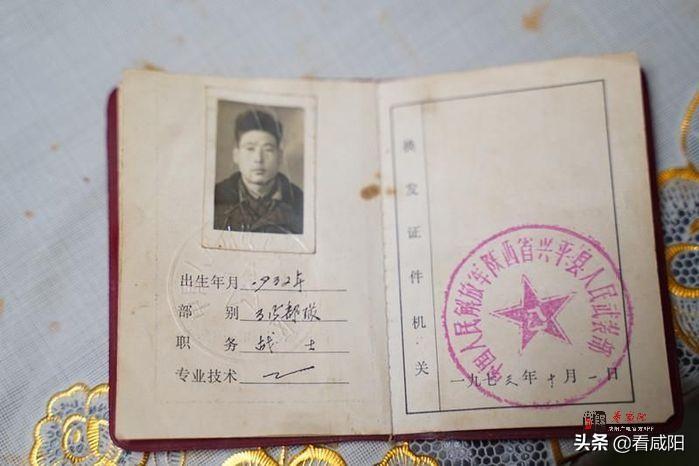 出生年月 1932年
部别
职务 战士
专业技术
换发证件机关
中国人民解放军陕西省兴平县人民武装部
一九七三年十月一日
头条 @看咸阳